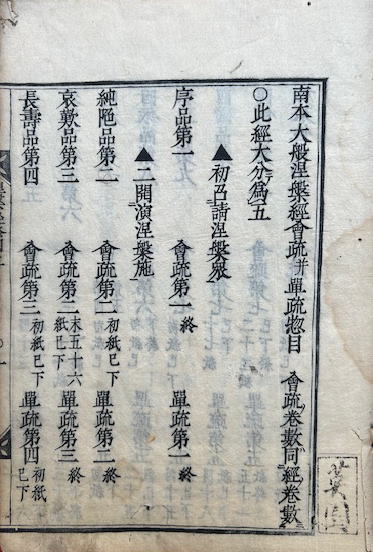 南本大般涅槃經會疏并單疏惣目　會疏卷數同經卷數
○此經大分爲五
▲初召請涅槃衆
序品第一　會疏第一終　單疏第一終
▲二開演涅槃施
純陀品第二　會疏第二初紙已下　單疏第二終
哀歎品第三　會疏第二末五十六紙已下　單疏第三終
長壽品第四　會疏第三初紙已下　單疏第四初紙已下